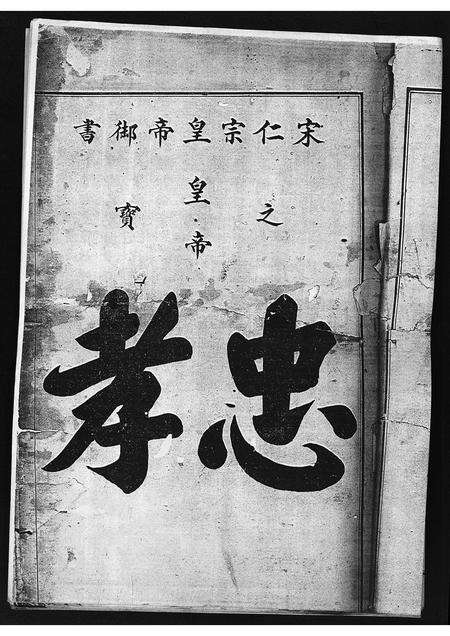 宋仁宗皇帝御書
皇帝之寶
忠孝